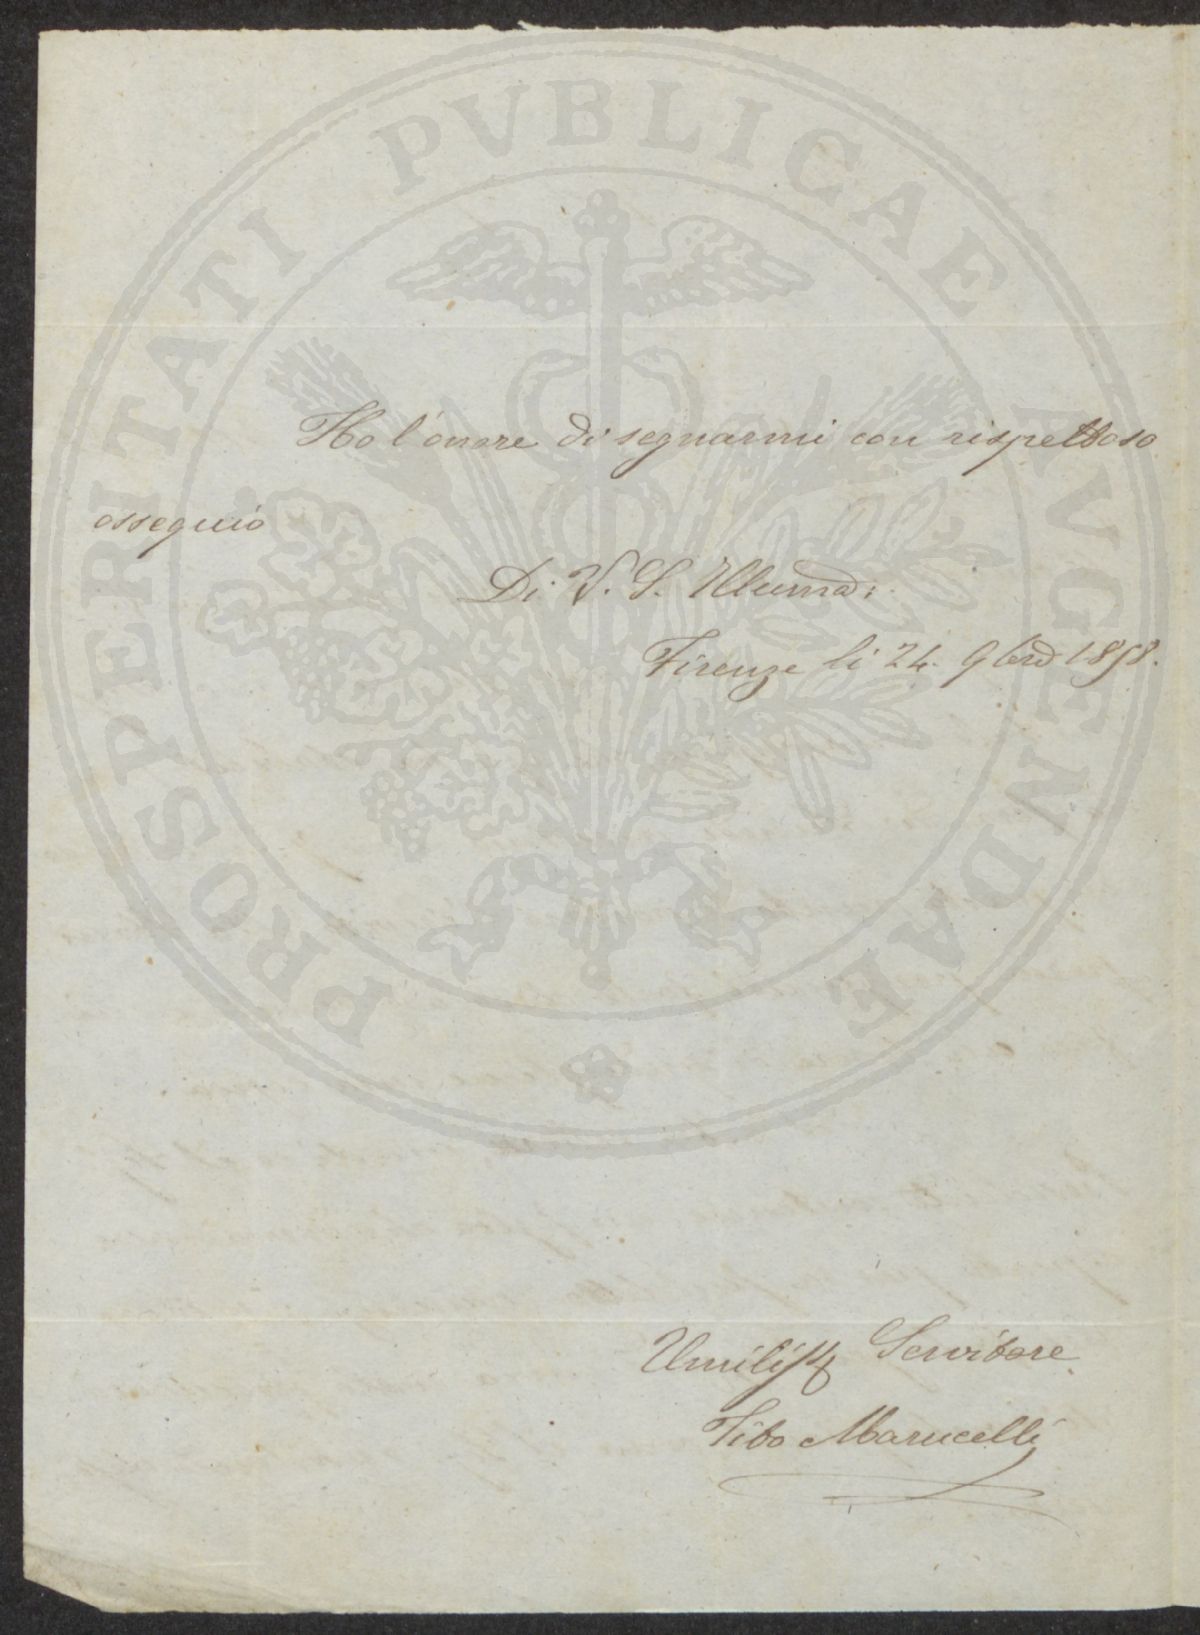 PROSPERITATI PVBLICAE AVGENDAE
Ho l'onore di segnarmi con rispettoso
ossequio
Di V. S. Illuma:
Firenze li 24. 9bre 1858.
Umiliss Servitore
Tito Marucelli